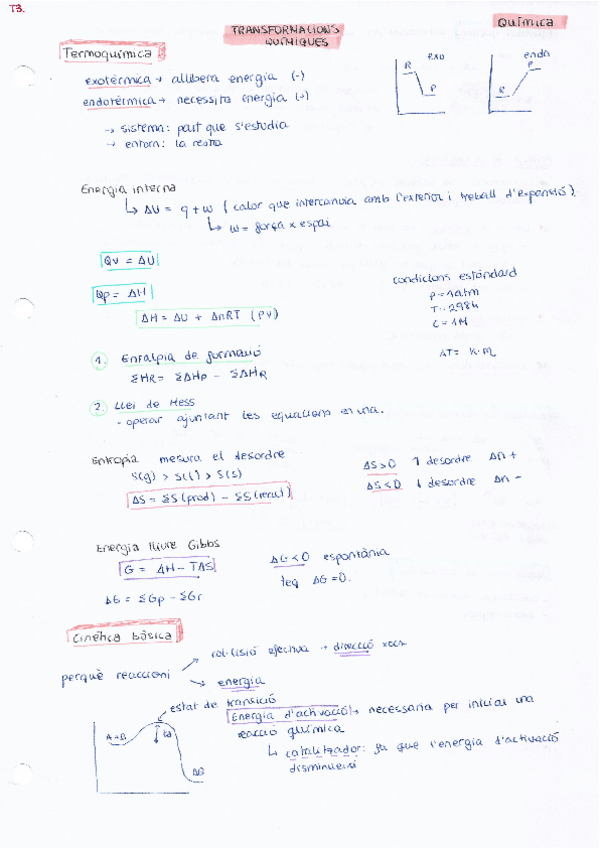 T3.
TRANSFORMACIONS QUÍMIQUES
Química
Termoquímica
exotèrmica → allibera energia (-)
endotèrmica → necessita energia (+)
→ sistema: part que s'estudia
→ entorn: la resta
exo
R
P
endo
P
R
Energia interna
↳ ΔU = q + w ( calor que intercanvia amb l'exterior i treball d'expansió)
↳ w = força x espai
Qv = ΔU
Qp = ΔH
ΔH = ΔU + ΔnRT (PV)
condicions estàndard
P = 1atm
T = 298k
C = 1M
ΔT = K·m
1. Entalpia de formació
ΣHR = ΣΔHp - ΣΔHR
2. Llei de Hess
- operar ajuntant les equacions en una.
Entropia mesura el desordre
S(g) > S(l) > S(s)
ΔS = ΣS(prod) - ΣS(react)
ΔS>0 ↑ desordre Δn +
ΔS<0 ↓ desordre Δn -
Energia lliure Gibbs
G = ΔH - TΔS
ΔG = ΣGp - ΣGr
ΔG<0 espontània
teq ΔG=0.
Cinètica bàsica
perquè reaccioni
col·lisió efectiva → direcció
energia
estat de transició
A+B
Ea
AB
Energia d'activació → necessaria per iniciar una
reacció química
↳ catalitzador: ja que l'energia d'activació
disminueixi